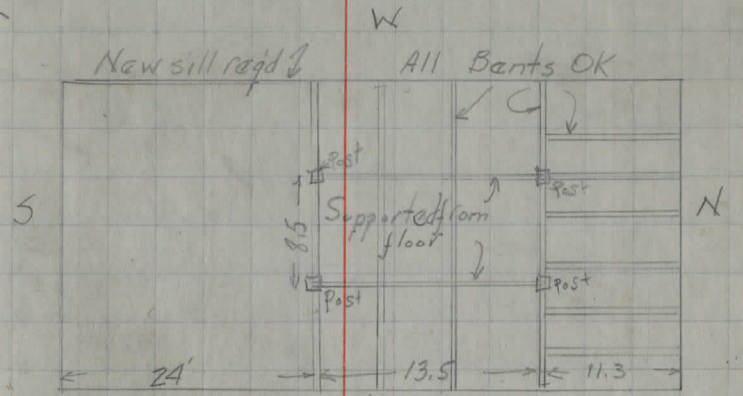 W
New sill reqd All Bents OK
Post
Post
S
N
8.5
Supported from
floor
Post
Post
24' 13.5 11.3